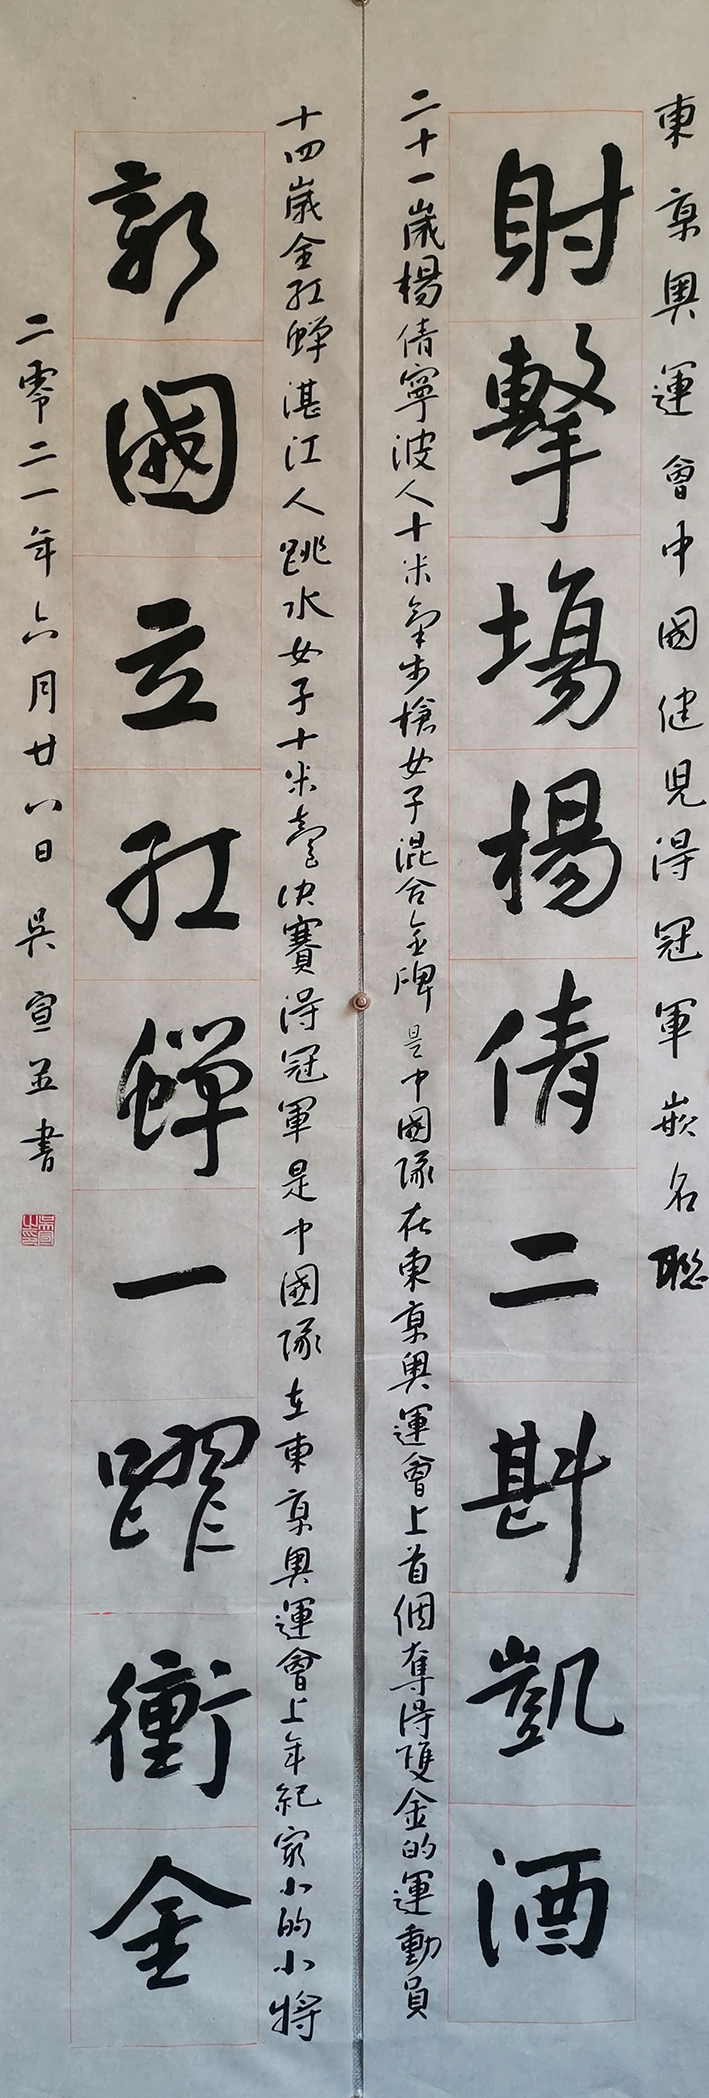 東京奧運會中國健兒得冠軍嵌名聯
射擊場楊倩二斟凱酒
二十一歲楊倩寧波人十米氣步槍女子混合金牌是中國隊在東京奧運會上首個奪得雙金的運動員
十四歲全紅蟬湛江人跳水女子十米臺決賽得冠軍是中國隊在東京奧運會上年紀最小的小將
新國立紅蟬一躍衝金
二零二一年六月廿八日 吳宣並書
吳宣之印